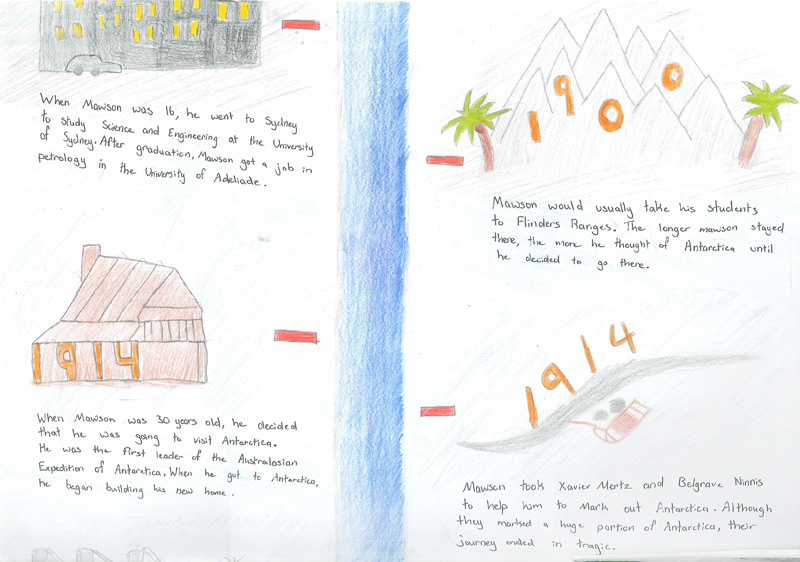 When Mawson was 16, he went to Sydney
to study Science and Engineering at the University
of Sydney. After graduation, Mawson got a job in
petrology in the University of Adeliade.
1914
When Mawson was 30 years old, he decided
that he was going to visit Antarctica.
He was the first leader of the Australasian
Expedition of Antarctica. When he got to Antarctica,
he began building his new home.
1900
Mawson would usually take his students
to Flinders Ranges. The longer mawson stayed
there, the more he thought of Antarctica until
he decided to go there.
1914
Mawson took Xavier Mertz and Belgrave Ninnis
to help him to Mark out Antarctica. Although
they marked a huge portion of Antarctica, their
journey ended in tragic.